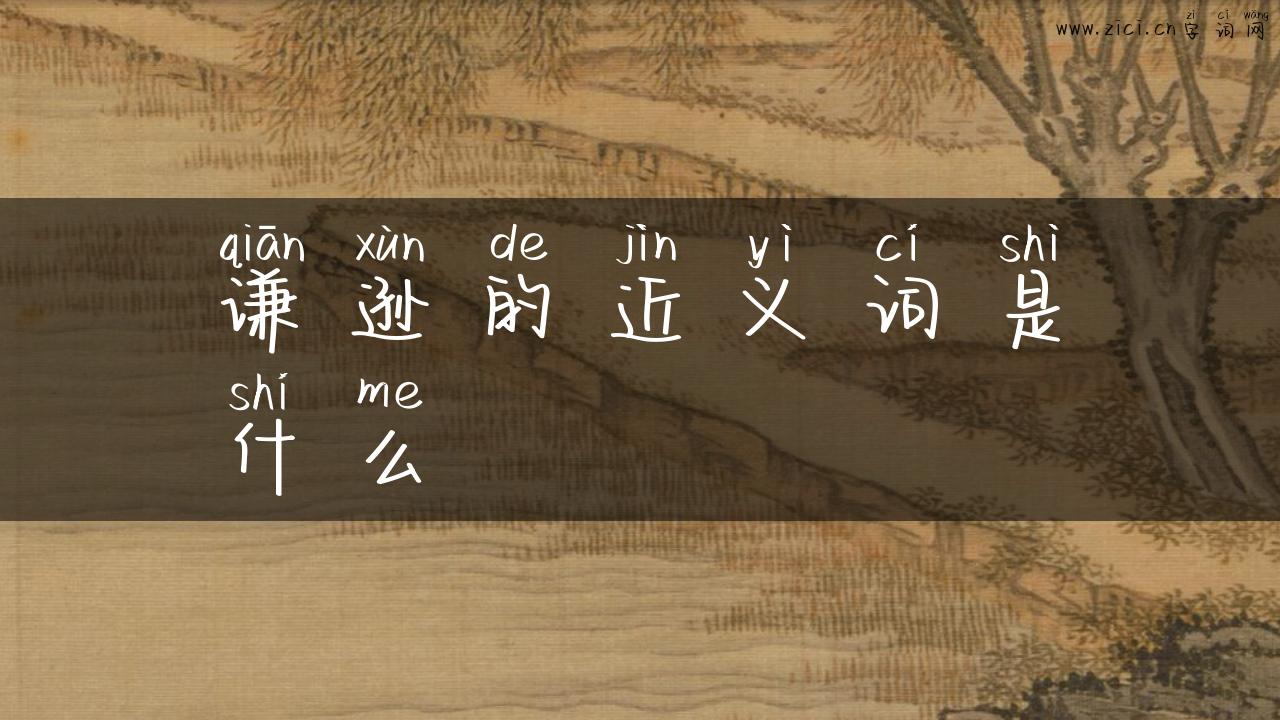 zì cí wǎng
www.zici.cn字词网
qiān xùn de jìn yì cí shì
谦逊的近义词是
shí me
什么